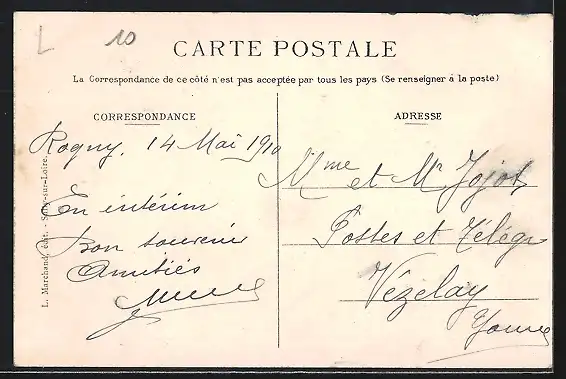 L 10
CARTE POSTALE
La Correspondance de ce côté n'est pas acceptée par tous les pays (Se renseigner à la poste)
CORRESPONDANCE
Rogny, 14 Mai 1910
En intérim
Bon souvenir
Amitiés
L. Marchand, édit. - Sully-sur-Loire.
ADRESSE
Mme et Mr Jojot
Postes et Télégr
Vézelay
Yonne